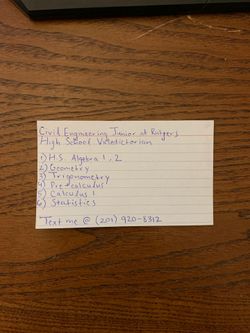 Civil Engineering Junior at Rutgers
High School Valedictorian
1) H.S. Algebra 1, 2
2) Geometry
3) Trigonometry
4) Pre-calculus
5) Calculus 1
6) Statistics
Text me @ (201) 920-8312